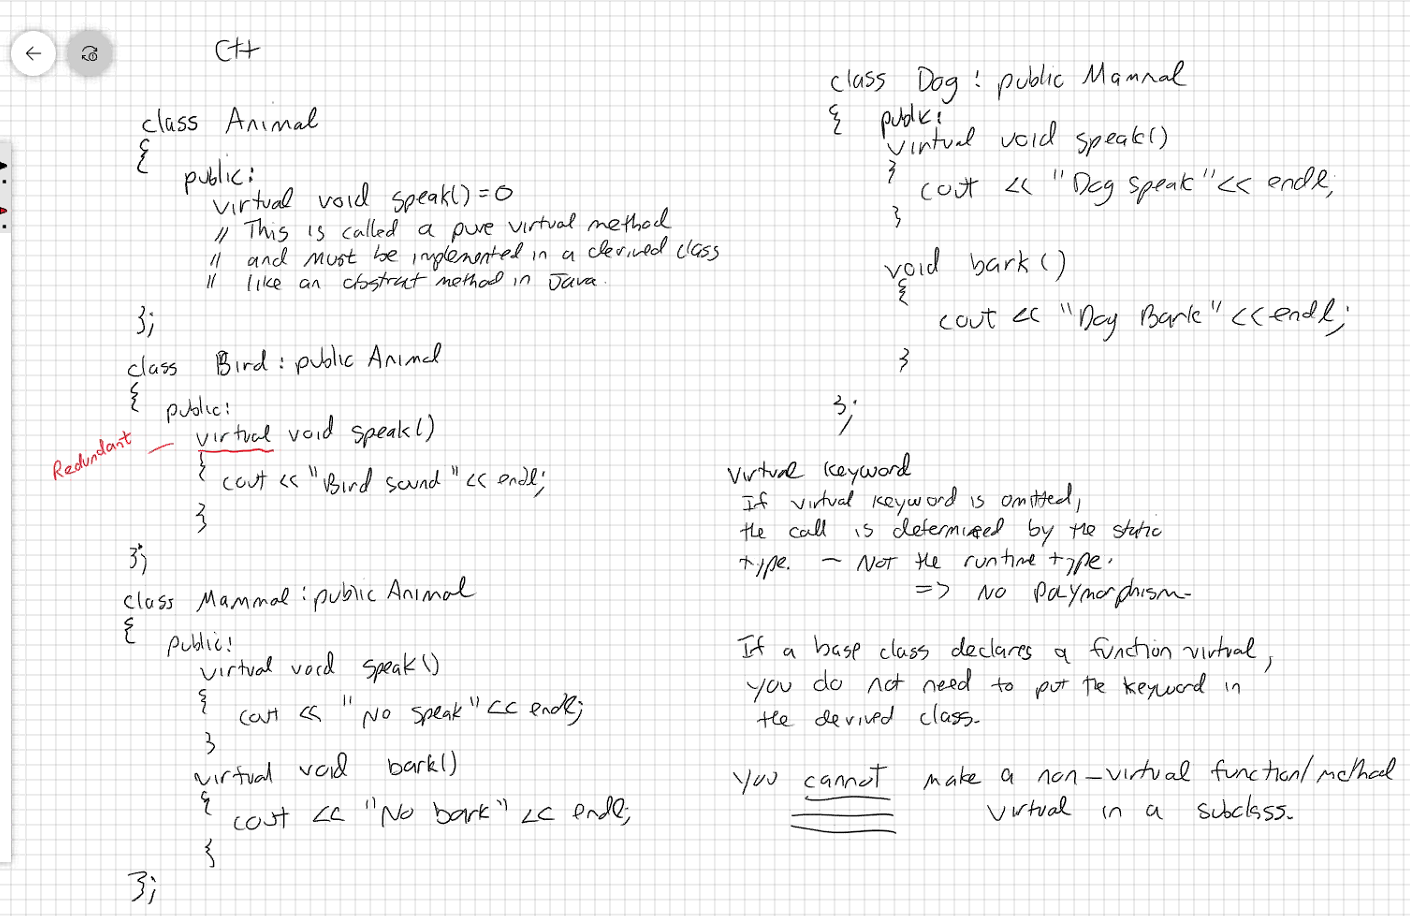 C++
class Animal
{
public:
virtual void speak() = 0
// This is called a pure virtual method
// and must be implemented in a derived class
// like an abstract method in Java.
};
class Bird : public Animal
{
public:
Redundant — virtual void speak()
{ cout << "Bird sound" << endl;
}
};
class Mammal : public Animal
{
public:
virtual void speak()
{
cout << "No speak" << endl;
}
virtual void bark()
{
cout << "No bark" << endl;
{
};
class Dog : public Mammal
{ public:
virtual void speak()
}
cout << "Dog speak" << endl;
}
void bark()
{
cout << "Dog Bark" << endl;
}
};
Virtual Keyword
If virtual keyword is omitted,
the call is determined by the static
type. – Not the runtime type.
=> No Polymorphism.
If a base class declares a function virtual,
you do not need to put the keyword in
the derived class.
You cannot make a non-virtual function/method
virtual in a subclass.